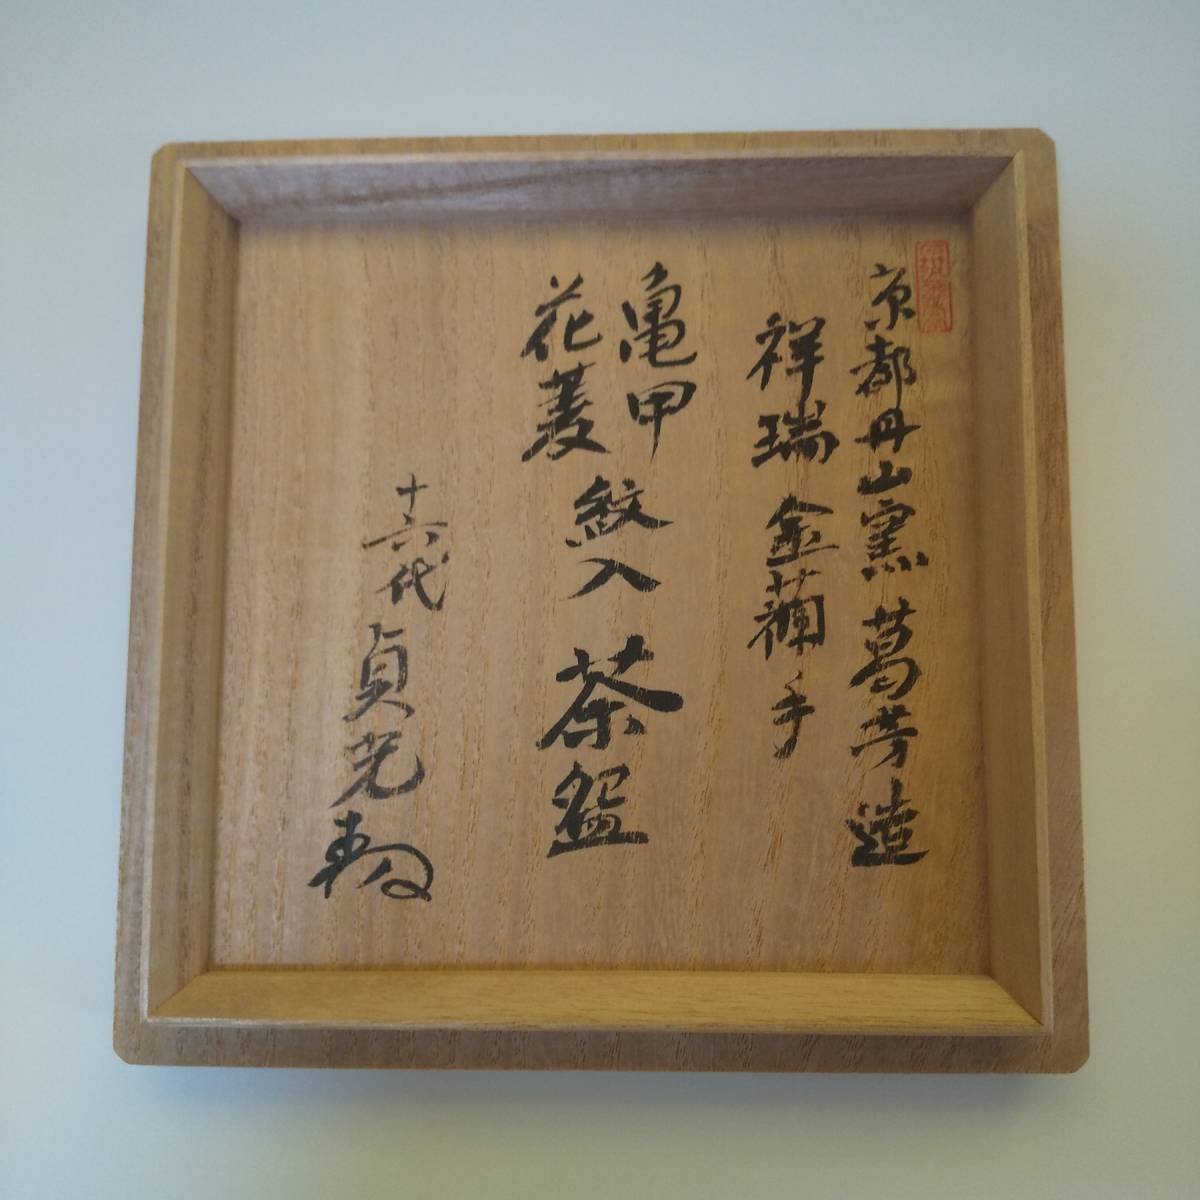 京都丹山窯 葛芳造
祥瑞 金襴手
亀甲
花菱 紋入 茶盌
十六代 貞光